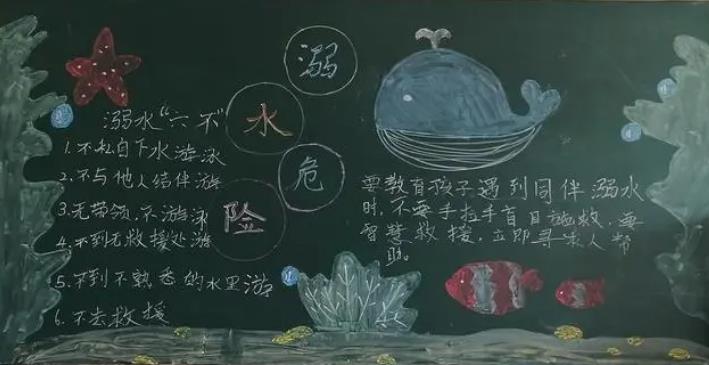 溺
水
危
险
溺水“六不”
1. 不私自下水游泳
2. 不与他人结伴游
3. 无带领，不游泳
4. 不到无救援处游
5. 不到不熟悉的水里游
6. 不去救援
要教育孩子遇到同伴溺水
时，不要手拉手盲目施救，要
智慧救援，立即寻求人帮
助。